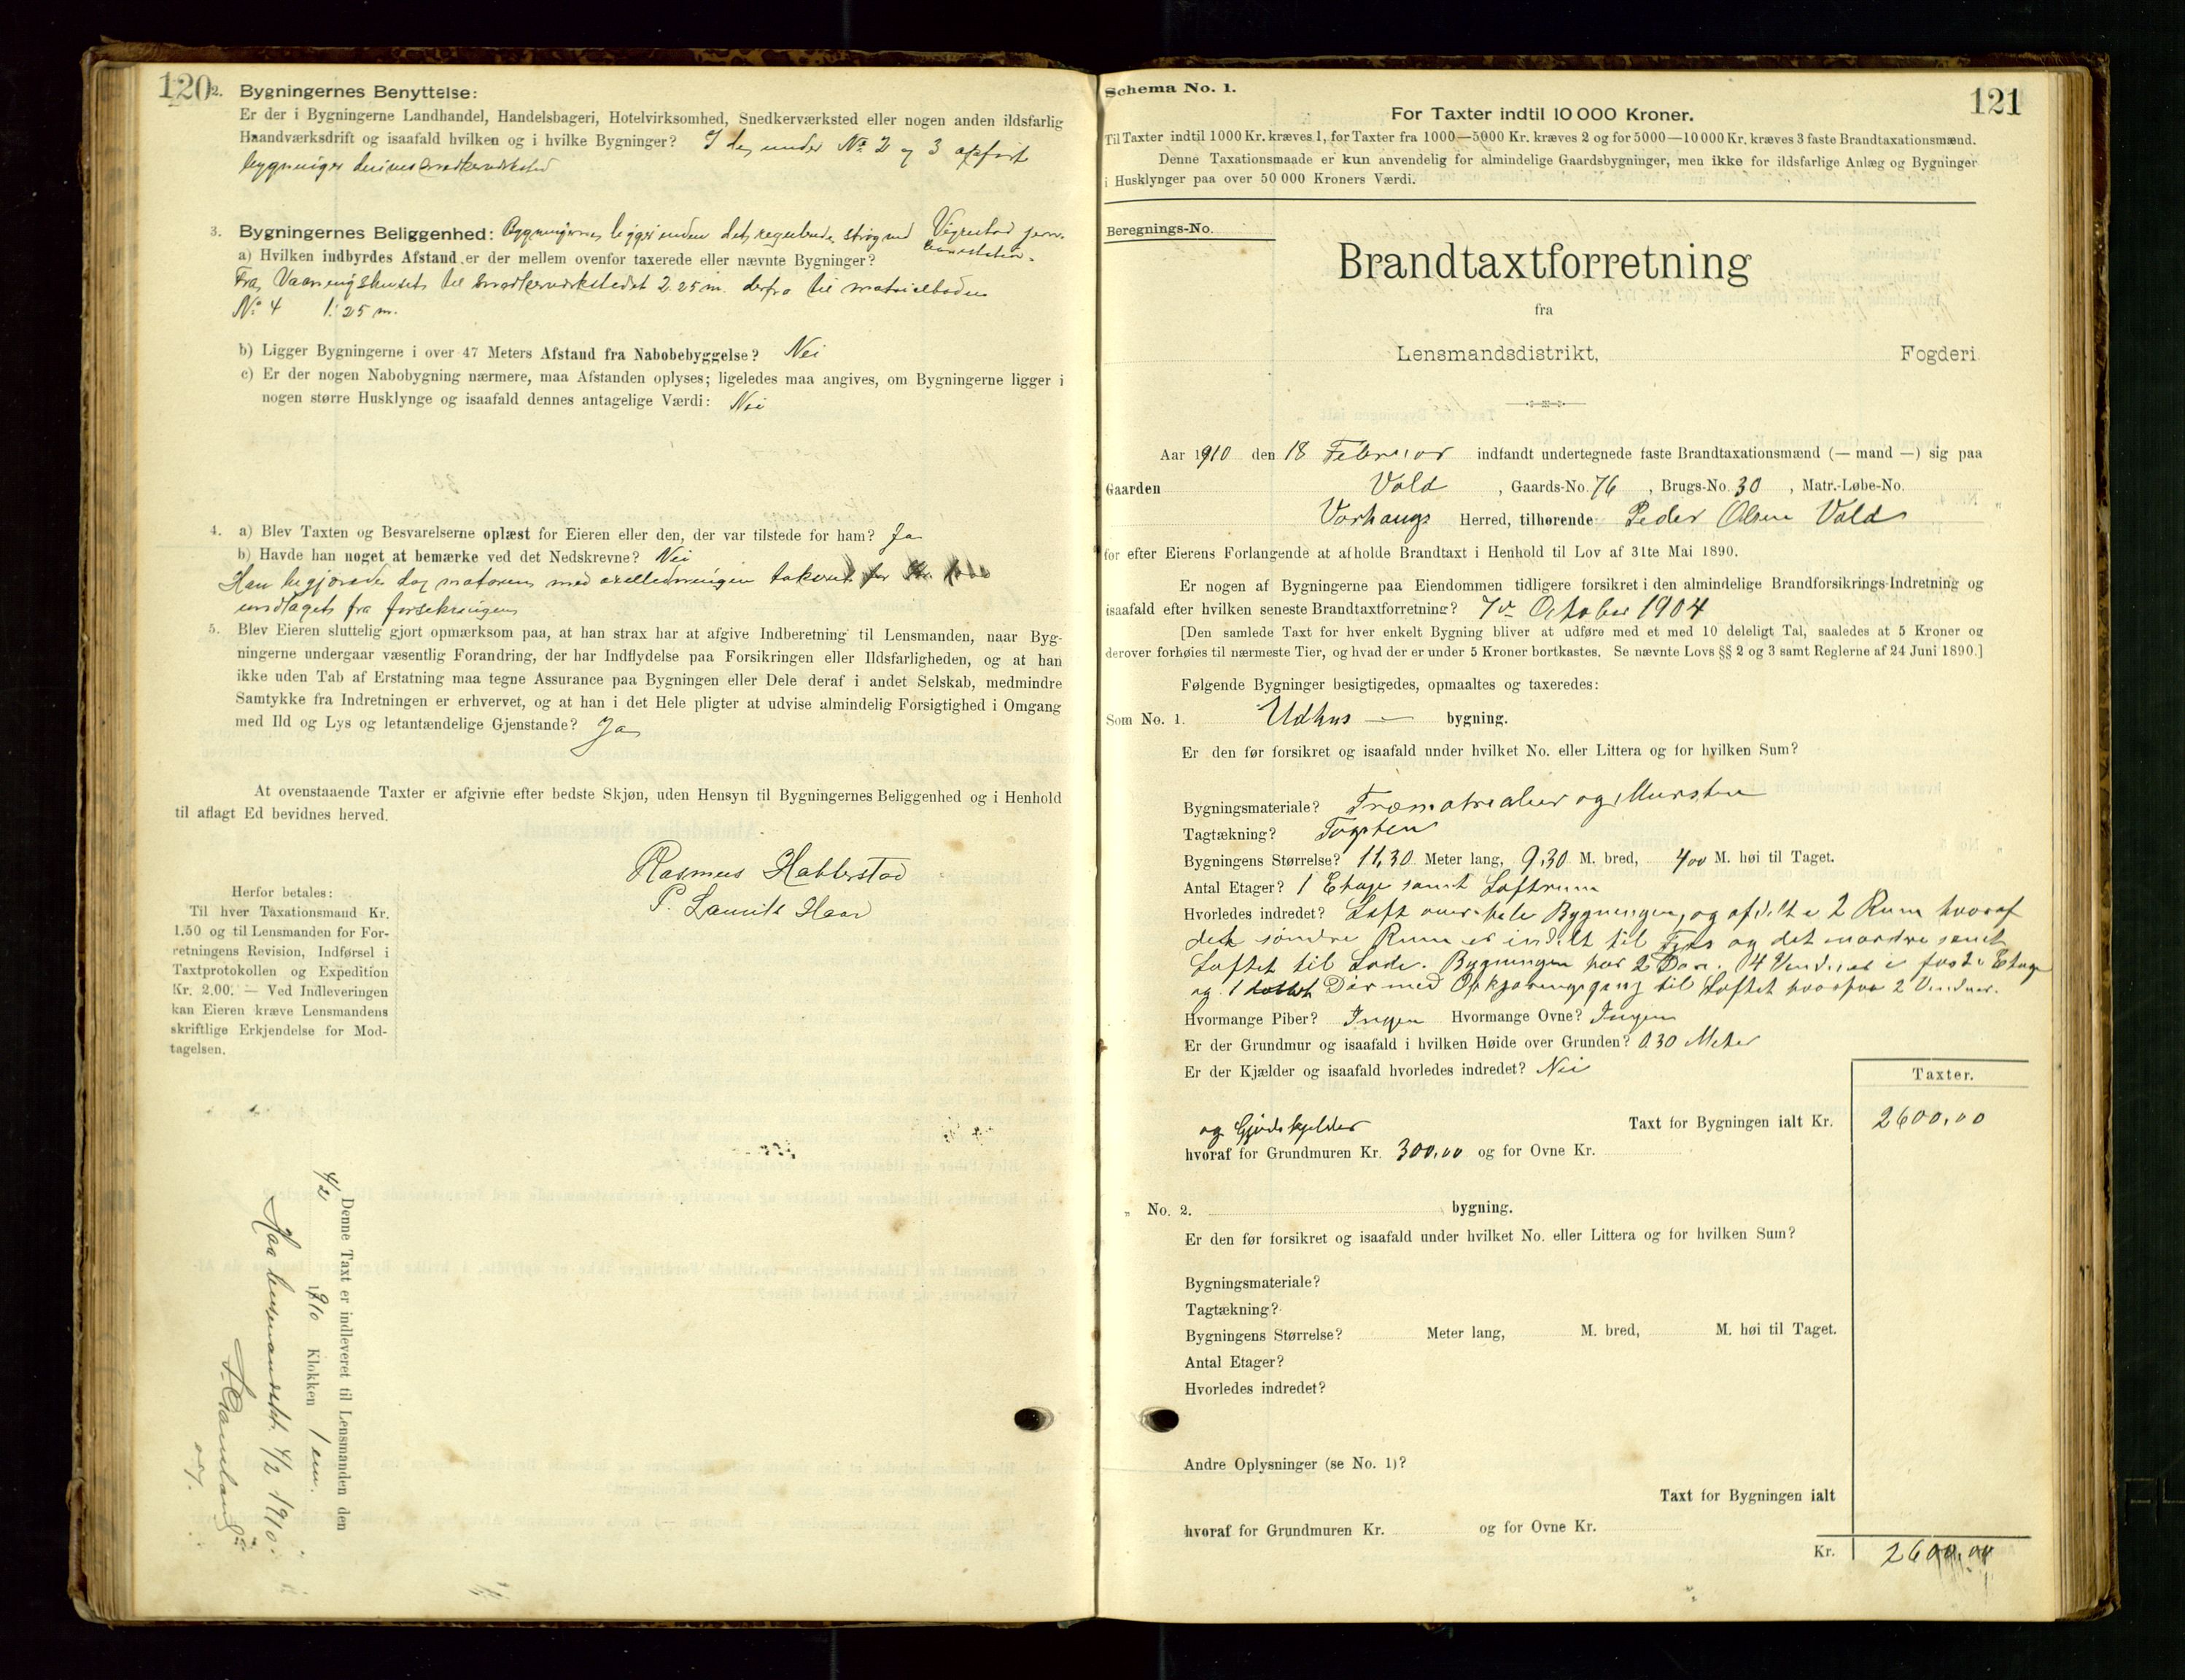 120
2. Bygningernes Benyttelse:
Er der i Bygningerne Landhandel, Handelsbageri, Hotelvirksomhed, Snedkerværksted eller nogen anden ildsfarlig
Haandværksdrift og isaafald hvilken og i hvilke Bygninger? I de under No 2 og 3 opført
bygninger drives
3. Bygningernes Beliggenhed: Bygningerne ligger inden det regulerede strøg ved Vigrestad jern-
banestation.
a) Hvilken indbyrdes Afstand er der mellem ovenfor taxerede eller nævnte Bygninger?
Fra Vaaningshuset til snedkerverkstedet 2.25 m. derfra til
No 4 1.25 m.
b) Ligger Bygningerne i over 47 Meters Afstand fra Nabobebyggelse? Nei
c) Er der nogen Nabobygning nærmere, maa Afstanden oplyses; ligeledes maa angives, om Bygningerne ligger i
nogen større Husklynge og isaafald dennes antagelige Værdi: Nei
4. a) Blev Taxten og Besvarelserne oplæst for Eieren eller den, der var tilstede for ham? Ja
b) Havde han noget at bemærke ved det Nedskrevne? Nei
Han begjærede dog motoren med
undtaget fra forsikringen
5. Blev Eieren sluttelig gjort opmærksom paa, at han strax har at afgive Indberetning til Lensmanden, naar Byg-
ningerne undergaar væsentlig Forandring, der har Indflydelse paa Forsikringen eller Ildsfarligheden, og at han
ikke uden Tab af Erstatning maa tegne Assurance paa Bygningen eller Dele deraf i andet Selskab, medmindre
Samtykke fra Indretningen er erhvervet, og at han i det Hele pligter at udvise almindelig Forsigtighed i Omgang
med Ild og Lys og letantændelige Gjenstande? Ja
At ovenstaaende Taxter er afgivne efter bedste Skjøn, uden Hensyn til Bygningernes Beliggenhed og i Henhold
til aflagt Ed bevidnes herved.
Rasmus Habberstad
P. Laurits Haar
Herfor betales:
Til hver Taxationsmand Kr.
1.50 og til Lensmanden for For-
retningens Revision, Indførsel i
Taxtprotokollen og Expedition
Kr. 2.00. — Ved Indleveringen
kan Eieren kræve Lensmandens
skriftlige Erkjendelse for Mod-
tagelsen.
Denne Taxt er indleveret til Lensmanden den
4/2 1910 Klokken 1 em.
Haa lensmandsdist. 4/2 1910
Schema No. 1.
121
For Taxter indtil 10 000 Kroner.
Til Taxter indtil 1000 Kr. kræves 1, for Taxter fra 1000—5000 Kr. kræves 2 og for 5000—10 000 Kr. kræves 3 faste Brandtaxationsmænd.
Denne Taxationsmaade er kun anvendelig for almindelige Gaardsbygninger, men ikke for ildsfarlige Anlæg og Bygninger
i Husklynger paa over 50 000 Kroners Værdi.
Beregnings-No.
Brandtaxtforretning
fra
Lensmandsdistrikt, Fogderi
Aar 1910 den 18 Februar indfandt undertegnede faste Brandtaxationsmænd (— mand —) sig paa
Gaarden Vold, Gaards-No. 76, Brugs-No. 30, Matr.-Løbe-No.
Varhaugs Herred, tilhørende Peder Olsen Vold
for efter Eierens Forlangende at afholde Brandtaxt i Henhold til Lov af 31te Mai 1890.
Er nogen af Bygningerne paa Eiendommen tidligere forsikret i den almindelige Brandforsikrings-Indretning og
isaafald efter hvilken seneste Brandtaxtforretning? 7de October 1904
[Den samlede Taxt for hver enkelt Bygning bliver at udføre med et med 10 deleligt Tal, saaledes at 5 Kroner og
derover forhøies til nærmeste Tier, og hvad der er under 5 Kroner bortkastes. Se nævnte Lovs §§ 2 og 3 samt Reglerne af 24 Juni 1890.]
Følgende Bygninger besigtigedes, opmaaltes og taxeredes:
Som No. 1. Udhus — bygning.
Er den før forsikret og isaafald under hvilket No. eller Littera og for hvilken Sum?
Bygningsmateriale? Træmatrealier og Mursten
Tagtækning? Tagsten
Bygningens Størrelse? 11,30 Meter lang, 9,30 M. bred, 4,00 M. høi til Taget.
Antal Etager? 1 Etage samt Loftrum
Hvorledes indredet? Loft over hele Bygningen, og afdelt i 2 Rum hvoraf
det søndre Rum er indelt til Fjøs og det nordre samt
Loftet til Lade. Bygningen har 2 Døre. 4 Vinduer i første Etage
og 1 Dør med Opkjøringsgang til Loftet hvorpaa 2 Vinduer.
Hvormange Piber? Ingen Hvormange Ovne? Ingen
Er der Grundmur og isaafald i hvilken Høide over Grunden? 0.30 Meter
Er der Kjælder og isaafald hvorledes indredet? Nei
Taxter.
Taxt for Bygningen ialt Kr. 2600,00
og Gjødskjelder
hvoraf for Grundmuren Kr. 300,00 og for Ovne Kr.
" No. 2. bygning.
Er den før forsikret og isaafald under hvilket No. eller Littera og for hvilken Sum?
Bygningsmateriale?
Tagtækning?
Bygningens Størrelse? Meter lang, M. bred, M. høi til Taget.
Antal Etager?
Hvorledes indredet?
Andre Oplysninger (se No. 1)?
Taxt for Bygningen ialt
hvoraf for Grundmuren Kr. og for Ovne Kr.
Kr. 2600,00